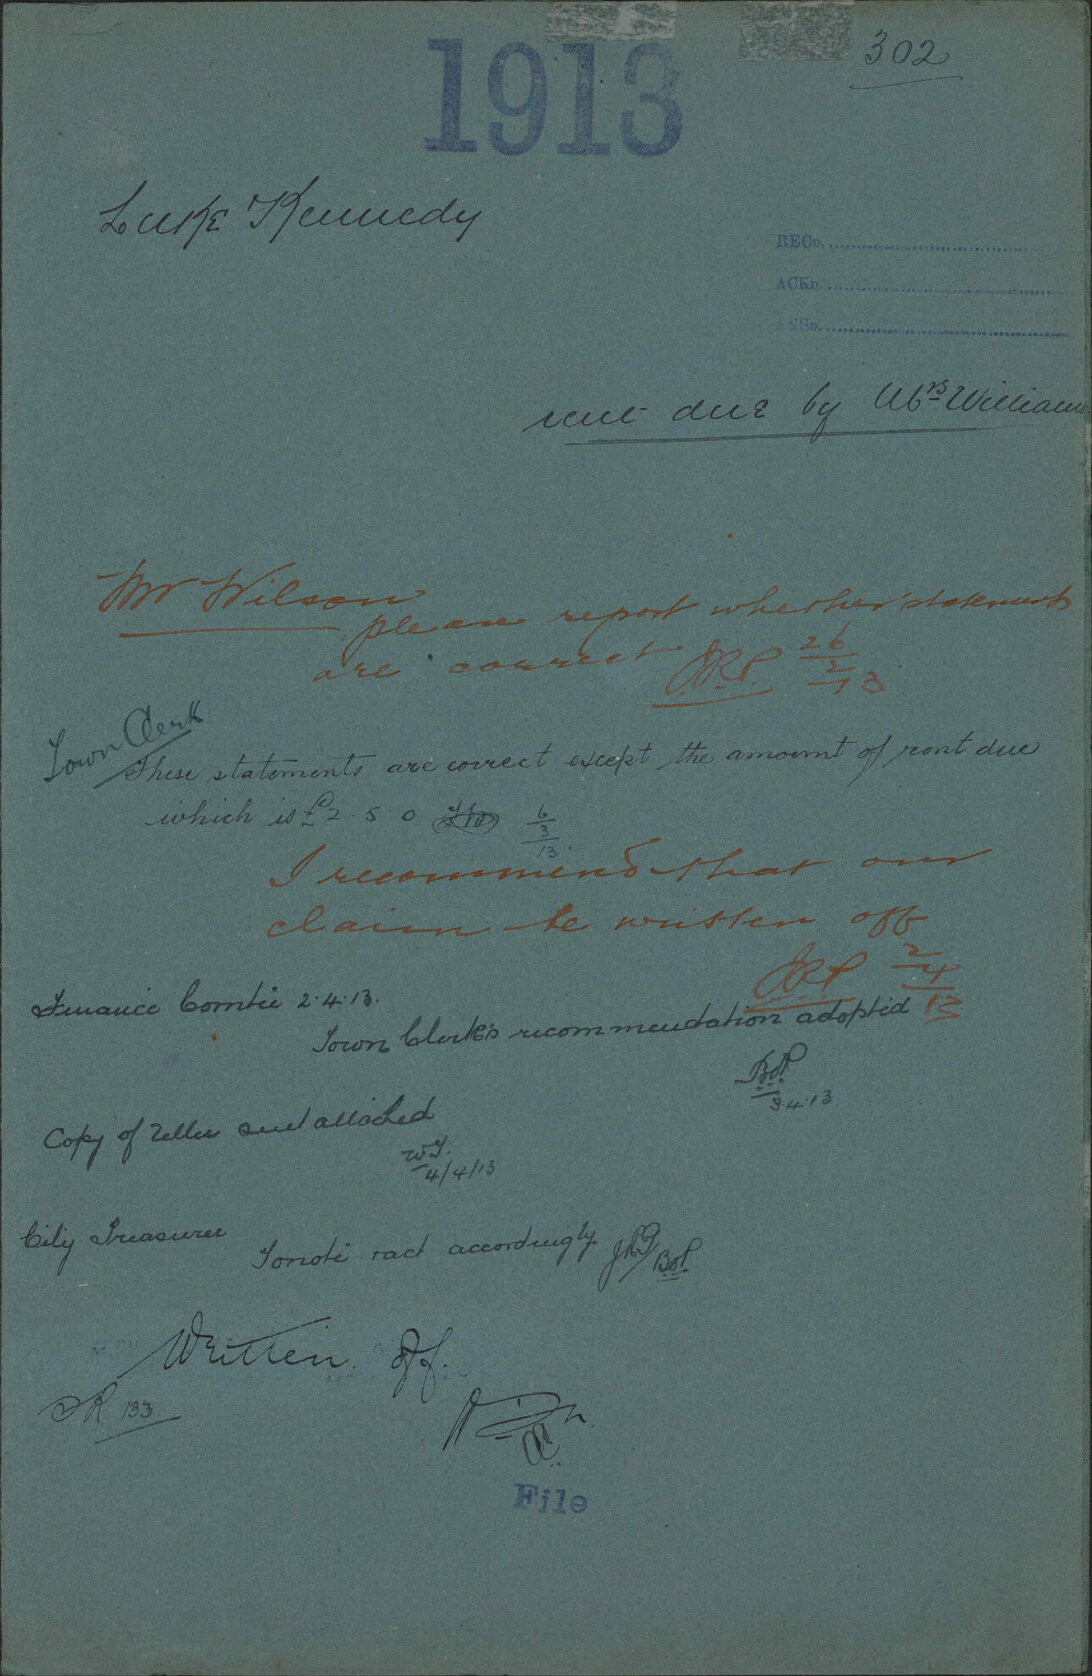 302
1913
Luke Kennedy
RECD.
ACKD.
ANSD.
rent due by Mrs Williams
Mr Wilson
please report whether statements
are correct JRP 26/2/13
Town Clerk
These statements are correct except the amount of rent due
which is £2.5.0 6/3/13
I recommend that our
claim be written off
JRP 2/4/13
Finance Comtee 2.4.13.
Town Clerk's recommendation adopted
3.4.13
Copy of letter sent attached
4/4/13
City Treasurer
To note & act accordingly
Written off.
133
File